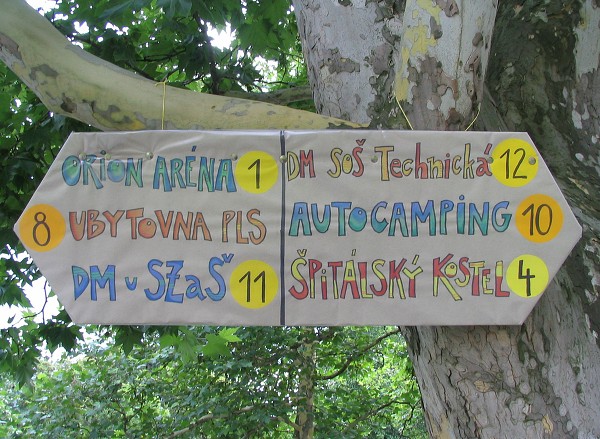 ORION ARÉNA 1
8 UBYTOVNA PLS
DM u SZaŠ 11
DM SOŠ Technická 12
AUTOCAMPING 10
ŠPITÁLSKÝ KOSTEL 4